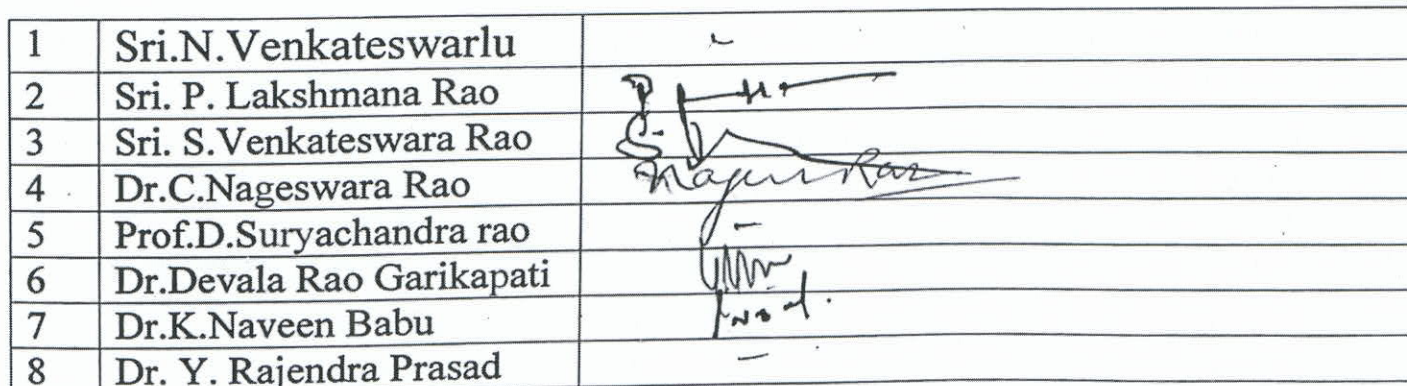 1 Sri.N.Venkateswarlu -
2 Sri. P. Lakshmana Rao
3 Sri. S.Venkateswara Rao
4 Dr.C.Nageswara Rao
5 Prof.D.Suryachandra rao -
6 Dr.Devala Rao Garikapati
7 Dr.K.Naveen Babu
8 Dr. Y. Rajendra Prasad -